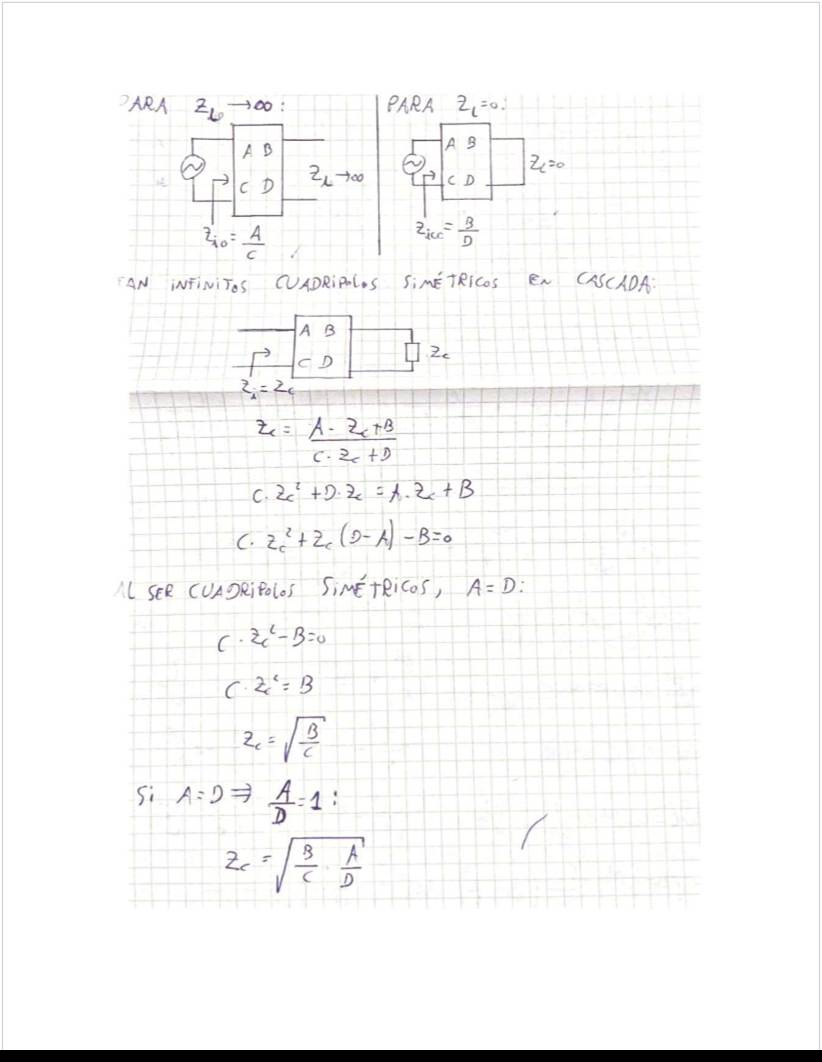 PARA Z_L → ∞:
A B
C D
Z_L → ∞
Z_io = A/C
PARA Z_L = 0:
A B
C D
Z_L = 0
Z_icc = B/D
TAN INFINITOS CUADRIPOLOS SIMÉTRICOS EN CASCADA:
A B
C D
Z_c
Z_i = Z_c
Z_c = (A · Z_c + B)/(C · Z_c + D)
C · Z_c² + D · Z_c = A · Z_c + B
C · Z_c² + Z_c (D - A) - B = 0
AL SER CUADRIPOLOS SIMÉTRICOS, A = D:
C · Z_c² - B = 0
C · Z_c² = B
Z_c = √(B/C)
Si A = D ⇒ A/D = 1:
Z_c = √(B/C · A/D)